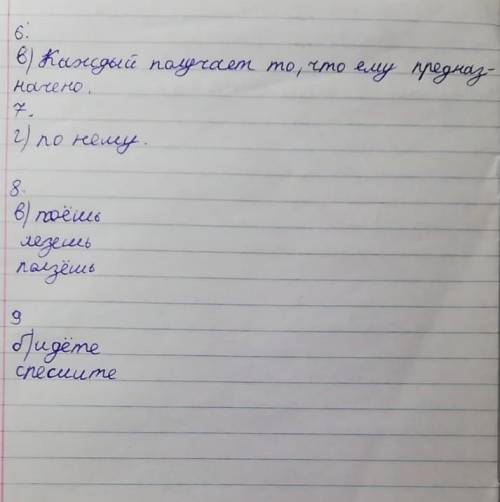 6.
в) Каждый получает то, что ему предназ-
начено.
7.
г) по нему.
8.
в) поёшь
лезешь
ползёшь
9
б) идёте
спешите